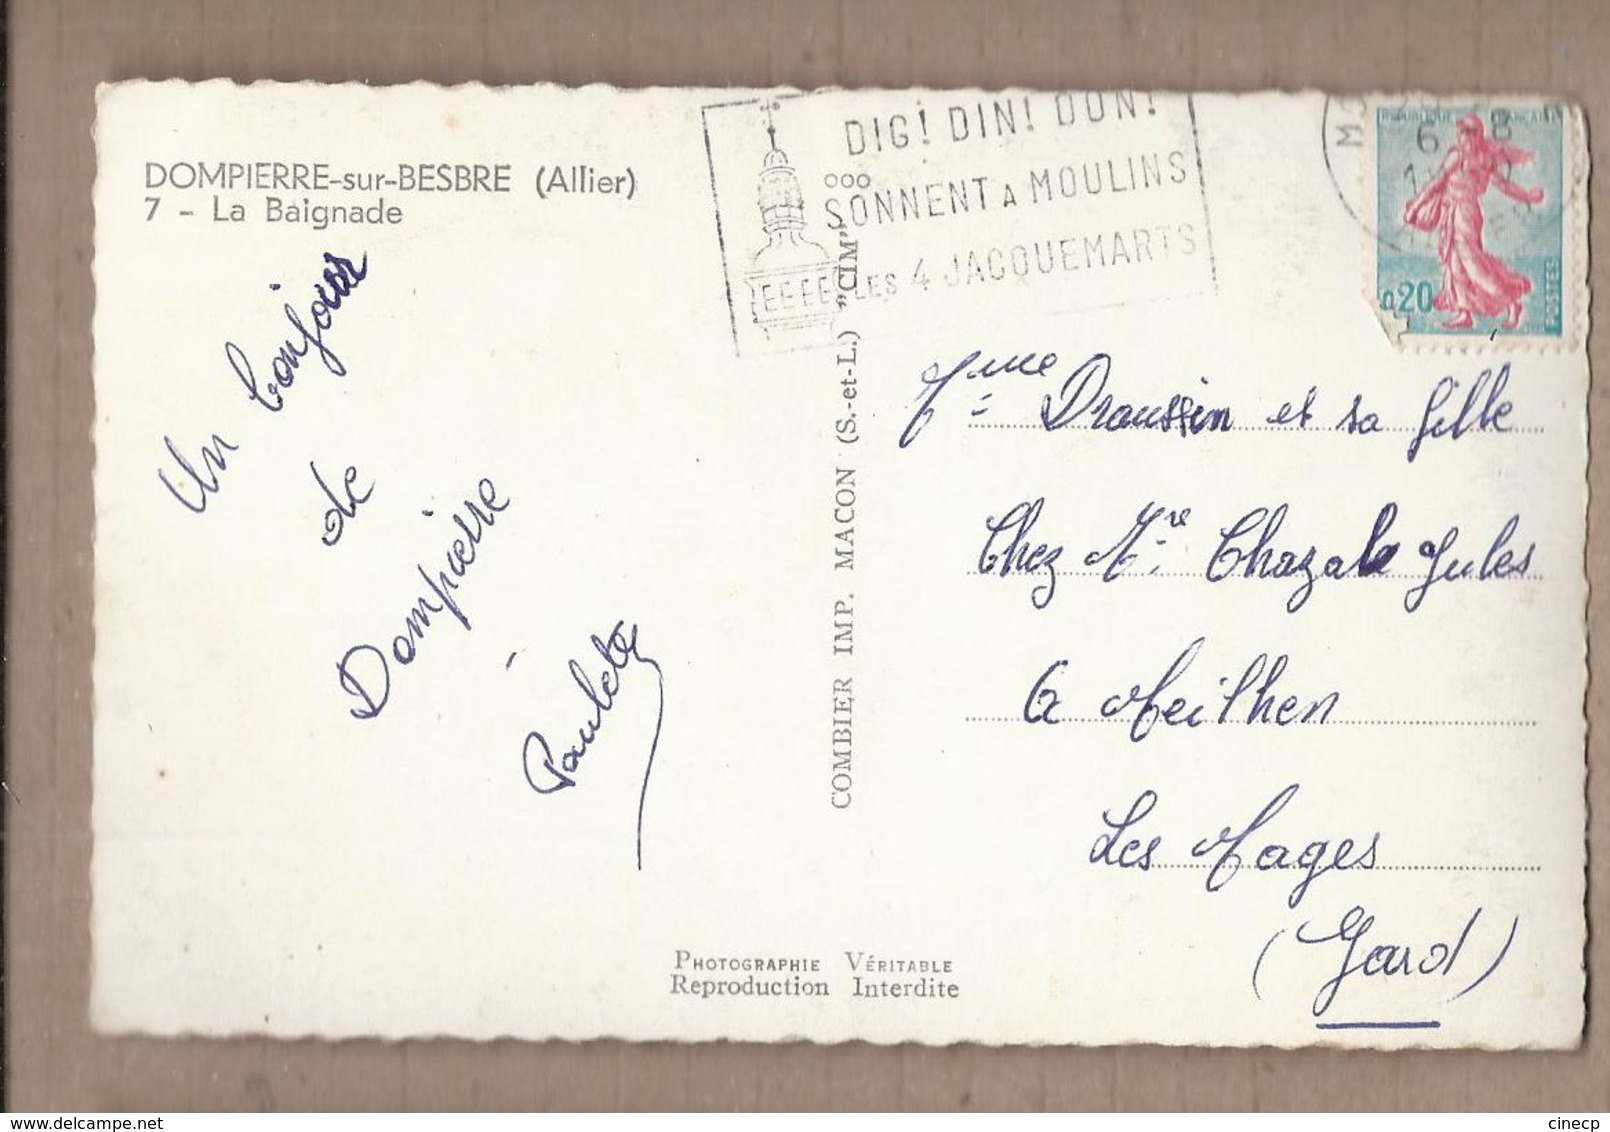 DOMPIERRE-sur-BESBRE (Allier)
7 - La Baignade
Un bonjour
de
Dompierre
Paulette
DIG! DIN! DON!
SONNENT A MOULINS
LES 4 JACQUEMARTS
6 - 8
0,20
POSTES
COMBIER IMP. MACON (S.-et-L.) "CIM"
Mme Draussin et sa fille
Chez Mre Chazale Jules
à Meilhen
Les Mages
(Gard)
PHOTOGRAPHIE VÉRITABLE
Reproduction Interdite
cinecp